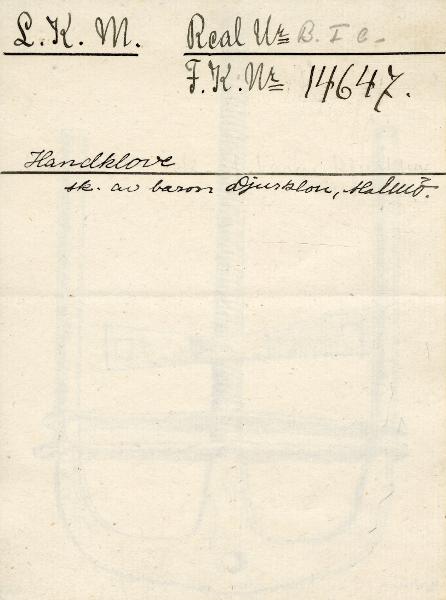 L. K. M. Real Nr B. I c.
F. K. Nr 14647.
Handklove
sk. av baron Djurklou, Malmö.